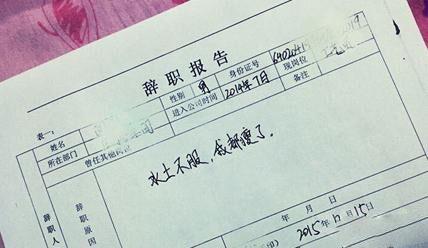 辞职报告
表一:
姓名
性别 男 身份证号
所在部门 进入公司时间 2014年7月 现岗位
曾任其他岗位 备注
辞职人
辞职原因
水土不服，我都瘦了。
年 月 日
2015年12月15日